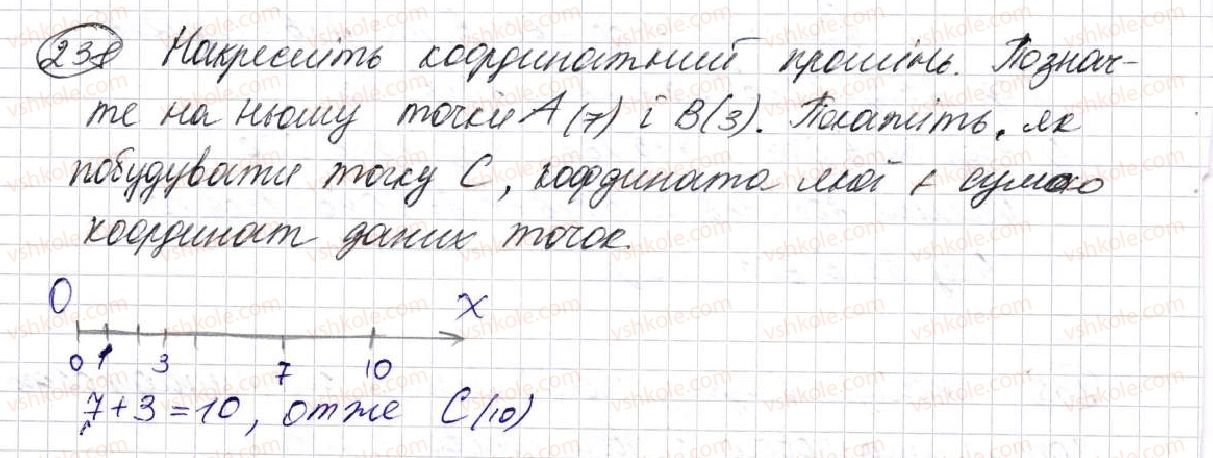 238 Накресліть координатний промінь. Познач-
те на ньому точки A(7) і B(3). Покажіть, як
побудувати точку C, координата якої є сумою
координат даних точок.
O x
0 1 3 7 10
7+3=10, отже C(10)